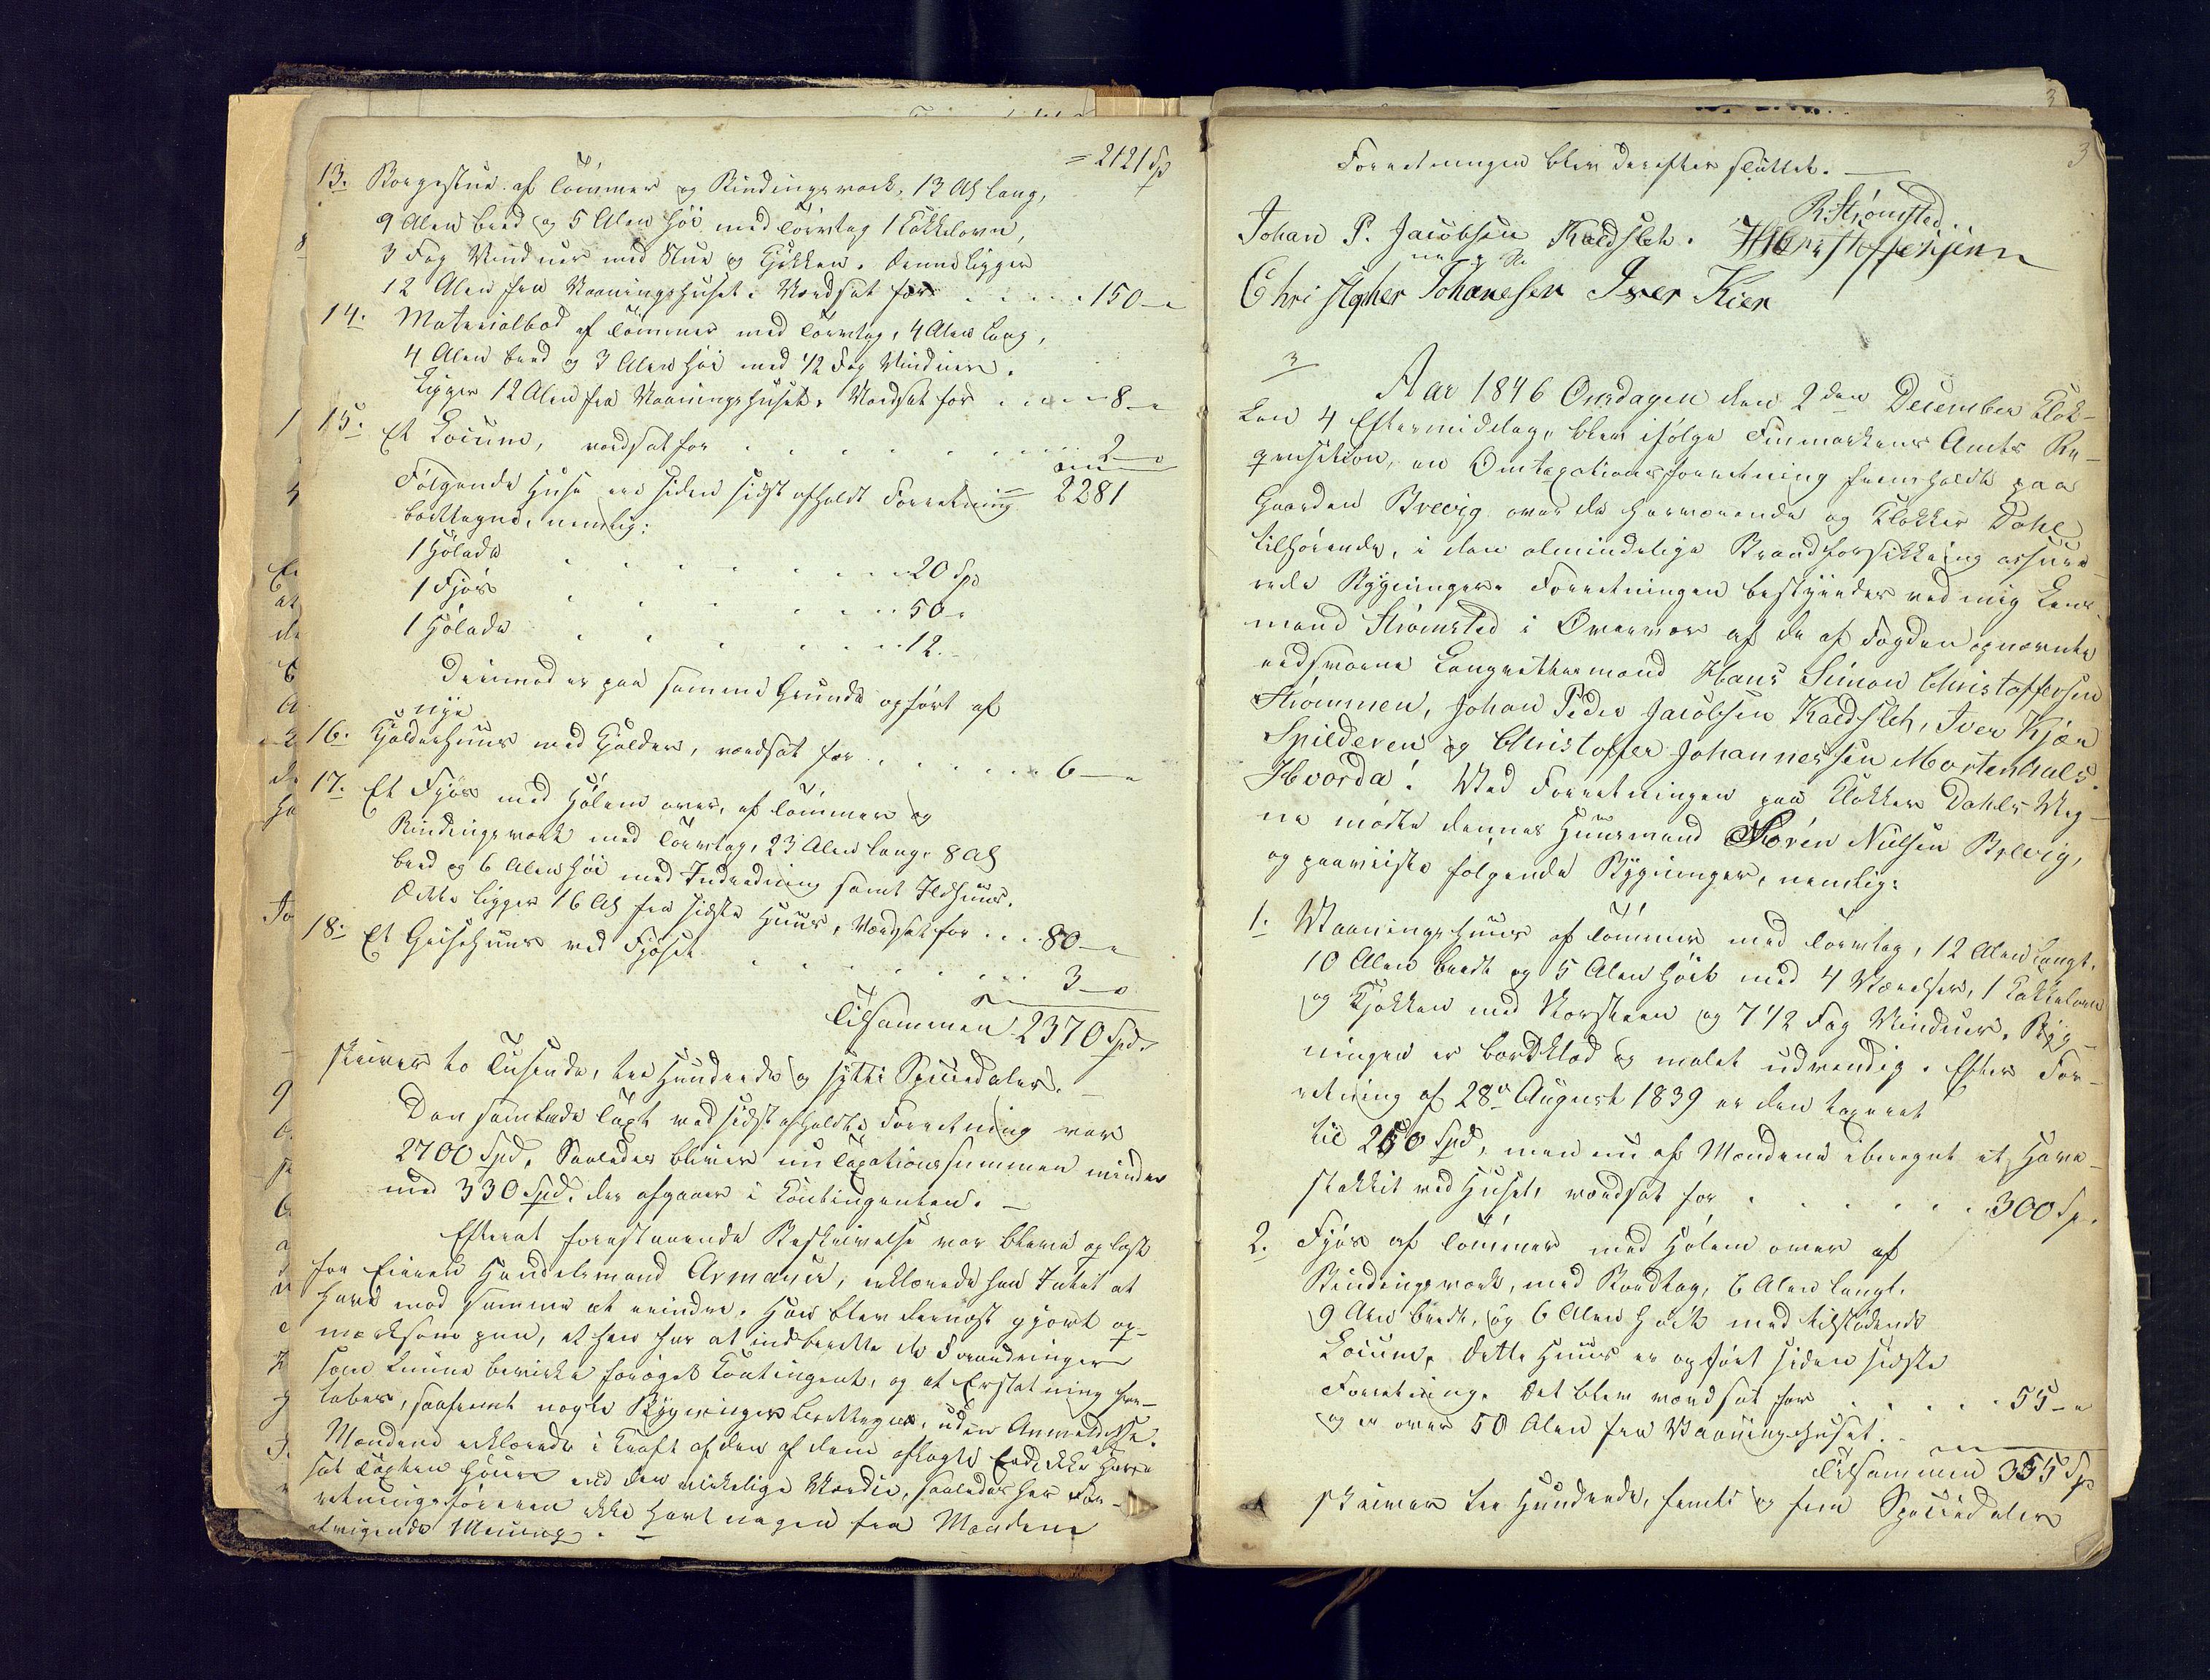 = 2121 Sp
13. Borgestue af Tømmer og Bindingsverk, 13 Al lang,
9 Alen bred og 5 Alen høi med Torvtag 1 Kakkelovn,
3 Fag Vinduer med Stue og Kjøkken. Denne ligger
12 Alen fra Vaaningshuset. Værdsat for . . . . . 150 -
14. Materialbod af Tømmer med Torvtag, 4 Alen lang,
4 Alen bred og 3 Alen høi med 1/2 Fag Vinduer.
Ligger 12 Alen fra Vaaningshuset. Værdsat for . . . . 8 -
15. Et Locum, værdsat for . . . . . . . . 2 -
= 2281
Følgende Huse ere siden sidst afholdt Forretning
borttagne, nemlig:
1 Hølade . . . . . . . 20 Spd
1 Fjøs . . . . . . . 50 -
1 Hølade . . . . . . . 12. -
Derimod er paa samme Grunde opført af
nye
16. Kjelderhuus med Kjelder, værdsat for . . . . . . 6 -
17. Et Fjøs med Hølem over, af Tømmer og
Bindingsverk med Torvtag, 23 Alen lang, 8 Al
bred og 6 Alen høi med Indredning samt Ildhuus.
Dette ligger 16 Al fra sidste Huus, Værdsat for . . . 80 -
18. Et Grisehuus ved Fjøset . . . . . . . 3 -
Tilsammen 2370 Spd.
skriver to Tusende, tre Hundrede og sytti Speciedaler. -
Den samlede Taxt ved sidst afholdte Forretning var
2700 Spd. Saaledes bliver nu Taxationssummen mindre
med 330 Spd. der afgaaer i Contingenten. -
Efterat forestaaende Beskrivelse var bleven oplæst
for Eieren Handelsmand Armauer, erklærede han Intet at
have mod samme at erindre. Han blev dernæst gjort op-
mærksom paa, at han har at indberette de Forandringer
som kunne bevirke forøget Contingent, og at Erstatning for-
tabes, saafremt nogle Bygninger borttages, uden Anmeldelse.
Mændene erklærede i Kraft af den af dem aflagte Eed ikke at have
sat Taxten høiere end den virkelige Værdie, saaledes har For-
retningsføreren ikke havt nogen fra Mændene
afvigende Mening. -
3
Forretningen blev derefter sluttet. -
R. Strømsted.
Johan P. Jacobsen Kaldsleh. HSChristoffersen
m. p. P.
Christopher Johanesen Iver Kier
3
Aar 1846 Onsdagen den 2den December Klok-
ken 4 Eftermiddag, blev ifølge Finmarkens Amts Re-
qvisition, en Omtaxationsforretning fremholdt paa
Gaarden Brevig over de herværende og Klokker Dahl
tilhørende, i den almindelige Brandforsikkring assure-
rede Bygninger. Forretningen bestyredes ved mig Lens-
mand Strømsted i Overvær af de af Fogden opnævnte
eedsvorne Laugrettesmænd Hans Simon Christoffersen
Strømmen, Johan Peder Jacobsen Kaldsleh, Iver Kjær
Spilderen og Christoffer Johannessen Mortenhals.
Hvorda! Ved Forretningen paa Klokker Dahls Veg-
ne mødte dennes Huusmand Søren Nielsen Brevig,
og paaviiste følgende Bygninger, nemlig:
1. Vaaningshuus af Tømmer med Torvtag, 12 Alen langt.
10 Alen bredt og 5 Alen høit med 4 Værelser, 1 Kakkelovn
og Kjøkken med Skorsteen og 7 1/2 Fag Vinduer. Byg-
ningen er bordklæd og malet udvendig. Efter For-
retning af 28de August 1839 er den taxeret
til 250 Spd, men nu af Mændene iberegnet et Have-
stakkit ved Huset, værdsat for . . . . . . 300 Sp.
2. Fjøs af Tømmer med Hølem over af
Bindingsverk, med Bordtag, 6 Alen langt.
9 Alen bredt, og 6 Alen høit med tilstødende
Locum. Dette Huus er opført siden sidste
Forretning. Det blev værdsat for . . . . . 55 -
og er over 50 Alen fra Vaaningshuset. -
Tilsammen 355 Sp
skriver tre Hundrede, femti og fem Speciedaler